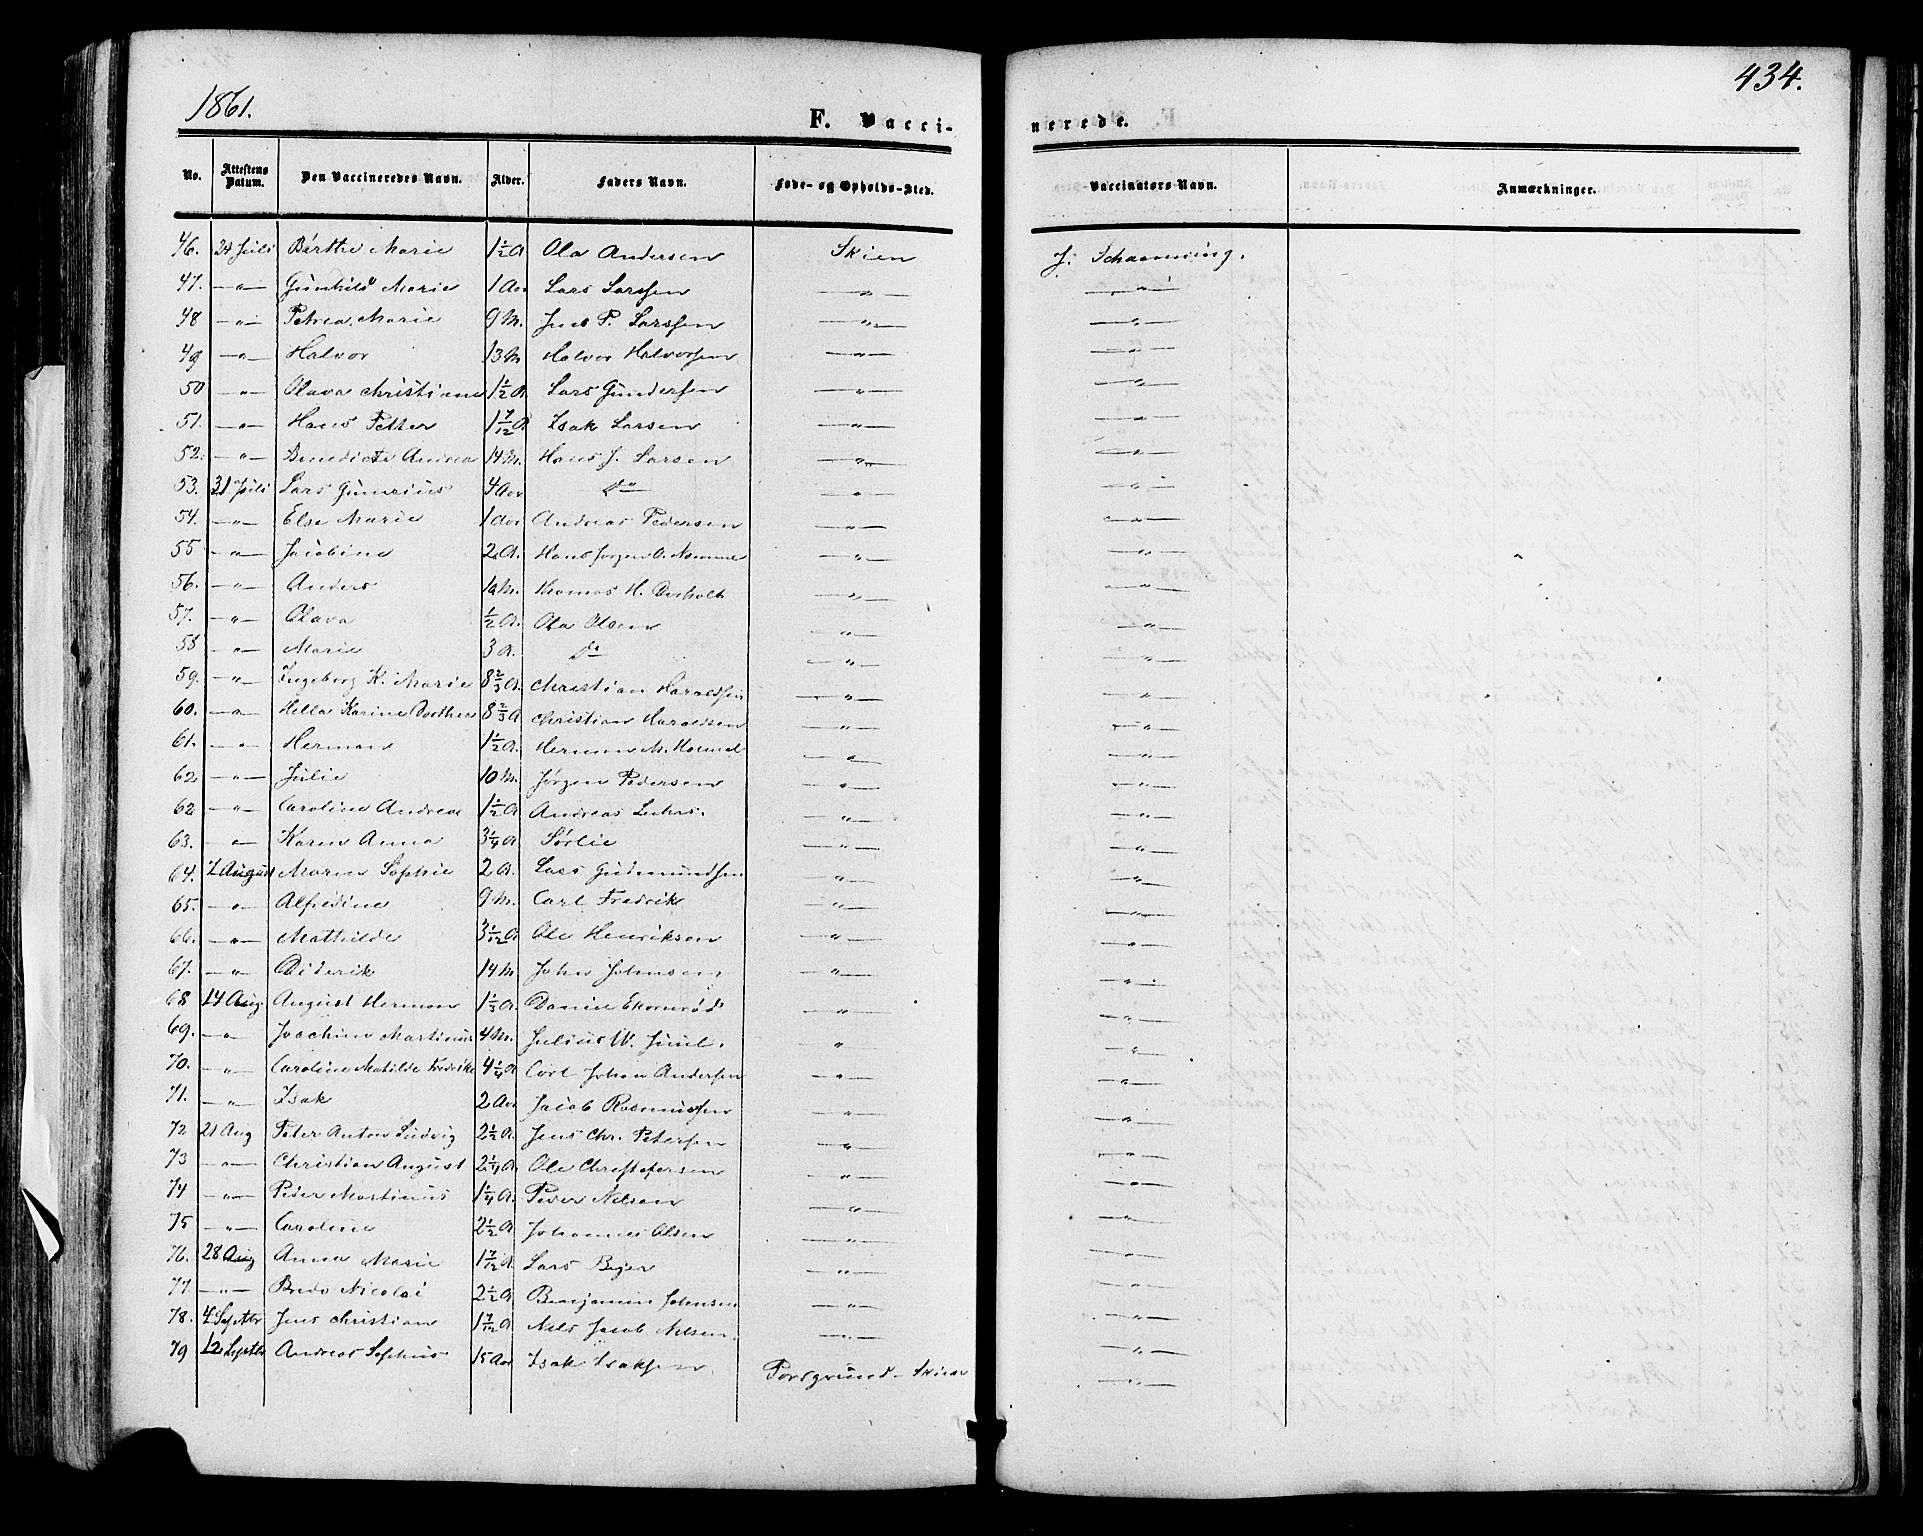 1861.
434.
F. Vacci-
nerede.
No. Attestens Datum. Den Vaccineredes Navn. Alder. Faders Navn. Føde- og Opholds-Sted. Vaccinators Navn. Anmærkninger.
46. 24 Juli Birthe Marie 1 1/2 A Ola Andersen Skien J. Schanning.
47. —"— Gunhild Marie 1 Aar Lars Larssen —"— —"—
48 —"— Petrea Marie 9 M. Jens P. Larssen —"— —"—
49 —"— Halvor 13 M Halvor Halvorsen —"— —"—
50 —"— Olava Christiane 1 1/2 A Lars Gundersen —"— —"—
51. —"— Hans Petter 1 7/12 A Isak Larsen —"— —"—
52. —"— Benedicte Andrea 14 M. Hans J. Larsen —"— —"—
53. 31 Juli Lars Gunerius 4 Aar do —"— —"—
54. —"— Else Marie 1 Aar Andreas Pedersen —"— —"—
55 —"— Jacobine 2 A. Hans Jørgen O. —"— —"—
56. —"— Anders M. Thomas H. —"— —"—
57. —"— Olava 1/2 A. Ola Olsen —"— —"—
58 —"— Marie 3 A. do —"— —"—
59. —"— Ingeborg K. Marie 8 2/3 A. Christian Haraldsen —"— —"—
60. —"— Hella Karine Dorthea 8 2/3 A Christian Haraldsen —"— —"—
61. —"— Herman 1 1/2 A. Herman M. —"— —"—
62 —"— Julie 10 M. Jørgen Pedersen —"— —"—
62 —"— Caroline Andrea 1 1/2 A Andreas —"— —"—
63. —"— Karen Anna 3 1/4 A Sørlie —"— —"—
64. 7 August Maren Sophie 2 A. Lars Gudmundsen —"— —"—
65. —"— Alfredine 9 M. Carl Fredrik —"— —"—
66. —"— Mathilde 3 1/12 A Ole Henriksen —"— —"—
67. —"— Diderik 14 M John Johnsen —"— —"—
68 14 Aug August Herman 1 1/3 A Daniel Ekornrød —"— —"—
69. —"— Joachim Martinus 4 M. Julius W. Juul. " —"—
70. —"— Caroline Matilde Fredrikke 4 1/4 A Carl Johan Andersen —"— —"—
71. —"— Isak 2 Aar Jacob Rasmussen —"— —"—
72 21 Aug Peter Anton Ludvig 2 1/2 A. Jens Chr. Petersen —"— —"—
73 —"— Christian August 2 1/4 A. Ole Christofersen —"— —"—
74 —"— Peder Martinus 1 1/4 A. Peder Nilsen —"— —"—
75 —"— Caroline 2 1/2 A Johannes Olsen —"— —"—
76. 28 Aug Anna Marie 1 7/12 A. Lars Bejer —"— —"—
77 —"— Bredo Nicolai 2 1/2 A Benjamin Johnsen —"— —"—
78. 4 Septbr Jens Christian 1 7/12 A Nils Jacob Nilsen. —"— —"—
79 12 Septbr Andreas Sophus 15 Aar Isak Isaksen Porsgrund - Skien —"—